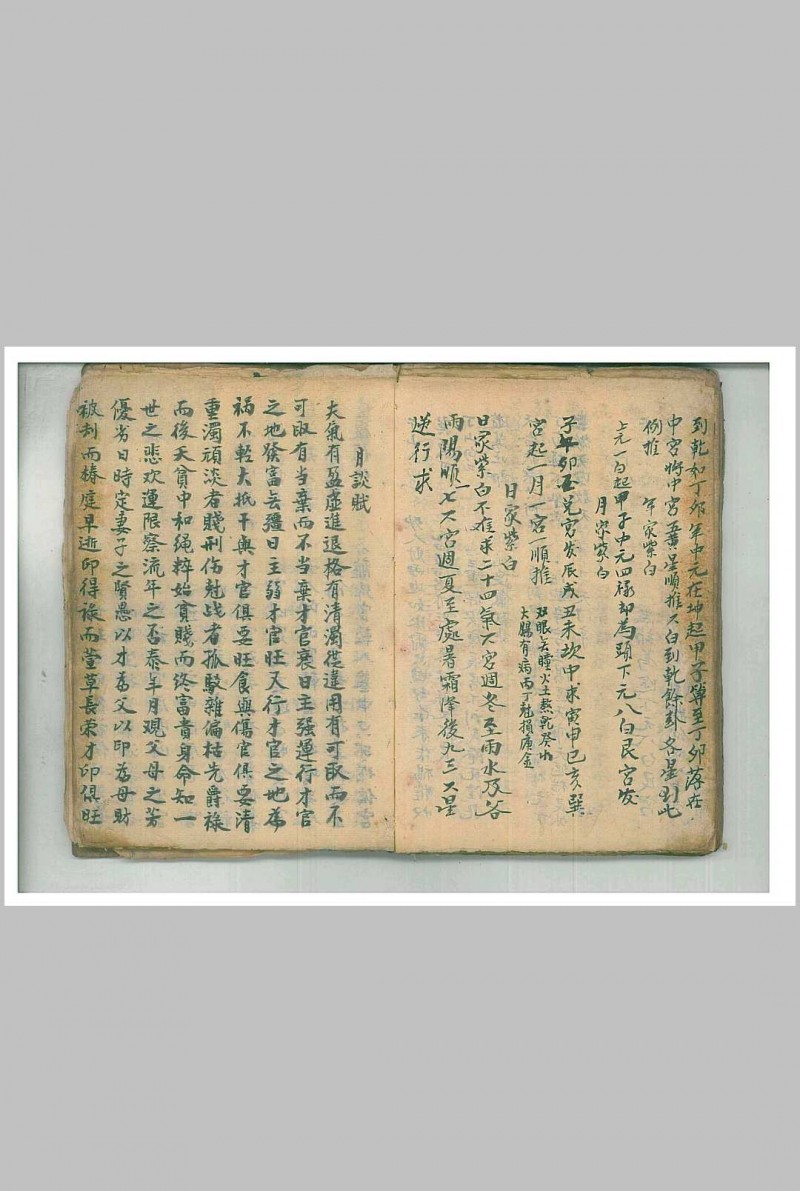 到乾如丁卯年中元在坤起甲子尊至丁卯落在
中宮將中宮五黃星順推六白到乾餘卦各星到此
例推
年家紫白
上元一白起甲子中元四祿却為頭下元八白艮宮發
月家紫白
子午卯酉兌宮發辰戌丑未坎中求寅申巳亥巽
宮起一月一宮一順推
双眼去瞳火土熬乾癸水
大腸有病丙丁尅損庚金
日家紫白
日家紫白不难求二十四氣六宮週冬至雨水及谷
雨陽順一七四宮週夏至處暑霜降後九三六星
逆行求
月談賦
夫氣有盈虛進退格有清濁從違用有可取而不
可取有当棄而不当棄才官衰日主强運行才官
之地發富无疆日主弱才官旺又行才官之地為
禍不輕大抵干與才官俱要旺食與傷官俱要清
重濁頑淡者賤刑伤尅战者孤駁雜偏枯先爵祿
而後夭貧中和绳粹始貧賤而终富貴身命知一
世之悲欢運限察流年之否泰年月观父母之芳
優劣日時定妻子之賢愚以才為父以印為母財
被刦而椿庭早逝印得祿而萱草長荣才印俱旺